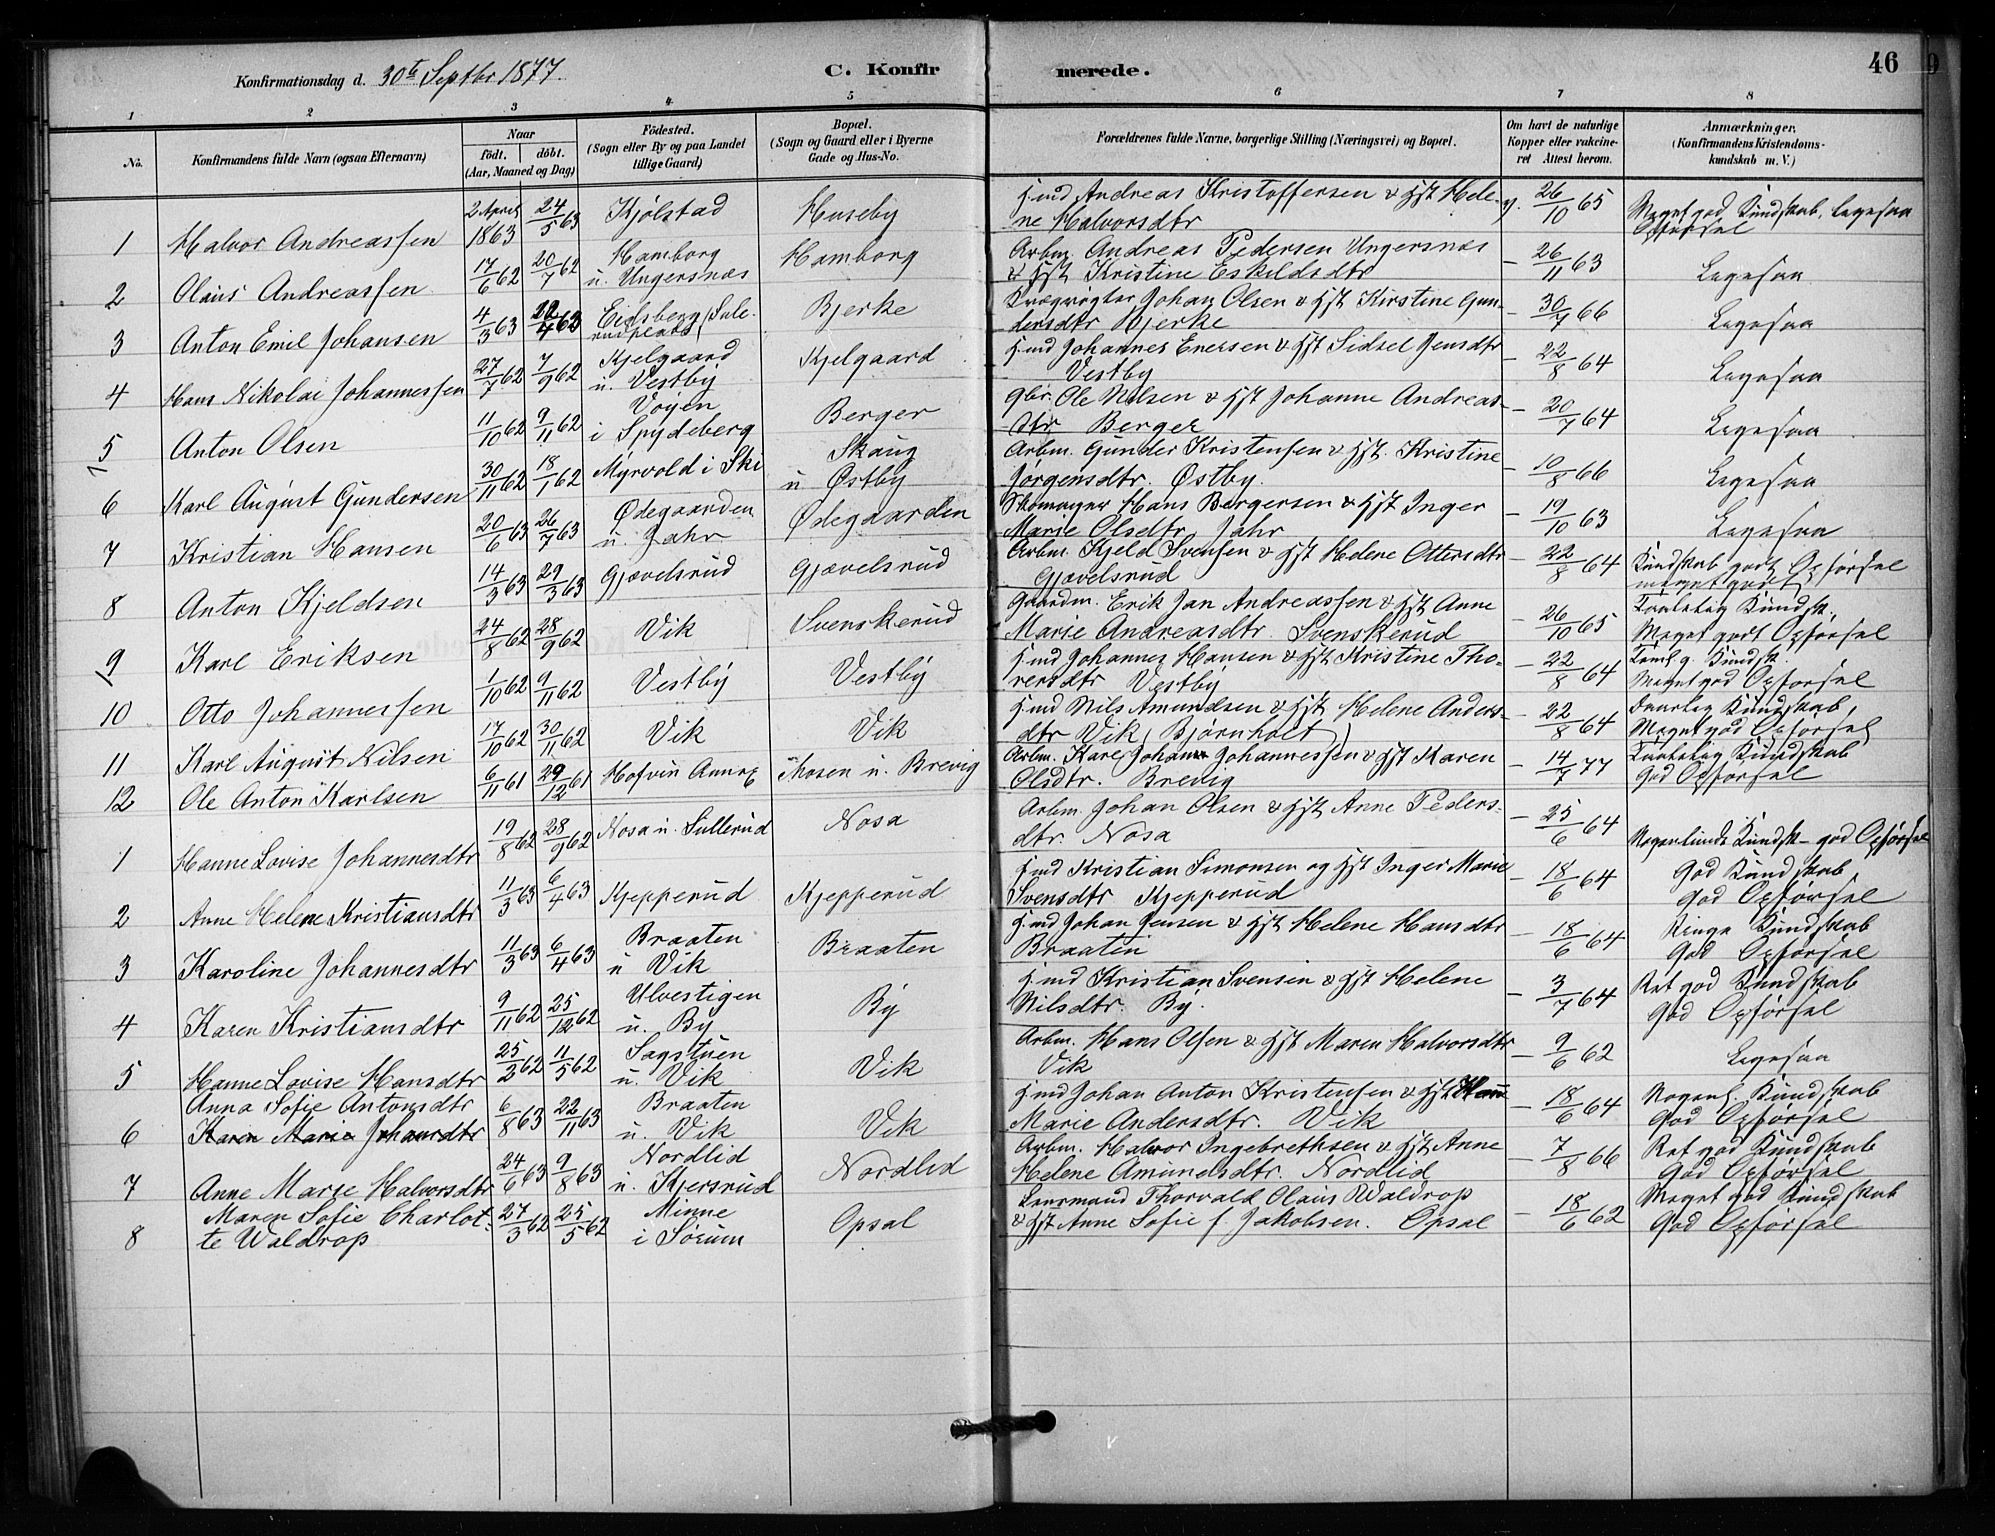 Konfirmationsdag d. 30te Septbr 1877. C. Konfirmerede. 46
1 2 3 4 5 6 7 8
No. Konfirmandens fulde Navn (ogsaa Efternavn) Naar født. døbt. (Aar, Maaned og Dag) Fødested. (Sogn eller By og paa Landet tillige Gaard) Bopæl. (Sogn og Gaard eller i Byerne Gade og Hus-No. Forældrenes fulde Navne, borgerlige Stilling (Næringsvei) og Bopæl. Om havt de naturlige Kopper eller vakcineret Attest herom. Anmærkninger. (Konfirmandens Kristendomskundskab m. V.)
1 Halvor Andreassen 2 April 1863 24/5 63 Kjølstad Huseby Hmd Andreas Kristoffersen & Hst Helene Halvorsdtr 26/10 65 Meget god Kundskab, Ligesaa Opførsel
2 Olaus Andreassen 17/6 62 20/7 62 Hamborg u. Ungersnæs Hamborg Arbm. Andreas Pedersen Ungersnæs & Hst Kristine Eskildsdtr – 26/11 63 Ligesaa
3 Anton Emil Johansen 4/3 63 /4 63 Eidsberg Bjerke Johan Olsen & Hst Kirstine Gundersdtr Bjerke – 30/7 66 Ligesaa
4 Hans Nikolai Johannessen 27/7 62 7/9 62 Kjelgaard u. Vestby Kjelgaard Hmd Johannes Enersen & Hst Sidsel Jensdtr Vestby – 22/8 64 Ligesaa
5 Anton Olsen 11/10 62 9/11 62 Vøyen i Spydeberg Berger Gbr. Ole Nilsen & Hst Johanne Andreasdtr Berger – 20/7 64 Ligesaa
6 Karl August Gundersen 30/11 62 18/1 62 Myrvold i Ski Skaug u Østby Arbm. Gunder Kristensen & Hst. Kristine Jørgensdtr. Østby. – 10/8 66 Ligesaa
7 Kristian Hansen 20/6 63 26/7 63 Ødegaarden u. Jahr Ødegaarden Skomager Hans Borgersen & Hst Inger Marie Olsdtr Jahr – 19/10 63 Ligesaa
8 Anton Kjeldsen 14/3 63 29/3 63 Gjævelsrud Gjævelsrud Arbm. Kjeld Svensen & Hst Helene Ottersdtr Gjævelsrud – 22/8 64 Kundskab godt Opførsel meget godt
9 Karl Eriksen 24/8 62 28/9 62 Vik Svenskerud Gaardm. Erik Jan Andreassen & Hst Anne Marie Andreasdtr. Svenskerud – 26/10 65 Taalelig Kundsk. Meget godt Opførsel
10 Otto Johannessen 1/10 62 9/11 62 Vestby Vestby Hmd Johannes Hansen & Hst Kristine Thoversdtr Vestby – 22/8 64 Kundsk. Meget god Opførsel
11 Karl August Nilsen 17/10 62 30/11 62 Vik Vik Hmd Nils Amundsen & Hst Helene Andersdtr Vik (Bjørnholt) – 22/8 64 Daarlig Kundskab, Meget god Opførsel
12 Ole Anton Karlsen 6/11 61 29/12 61 Hofvin Annex Mosen u. Brevig Arbm. Karl Johan Johannessen & Hst Karen Olsdtr. Brevig – 14/7 77 Taalelig Kundskab God Opførsel
1 Hanne Lovise Johannesdtr 19/8 62 28/9 62 Nosa u. Sullerud Nosa Arbm. Johan Olsen & Hst Anne Pedersdtr. Nosa – 25/6 64 Nogenlunde Kundsk – god Opførsel
2 Anne Helene Kristiansdtr 11/3 63 6/4 63 Kjepperud Kjepperud Hmd Kristian Simonsen og Hst Inger Marie Svensdtr Kjepperud – 18/6 64 God Kundskab God Opførsel
3 Karoline Johannesdtr 11/3 63 6/4 63 Braaten u Vik Braaten Hmd Johan Jensen & Hst Helene Hansdtr Braaten – 18/6 64 Ringe Kundskab God Opførsel
4 Karen Kristiansdtr 9/11 62 25/12 62 Ulvestigen u. By By Hmd Kristian Svensen & Hst Helene Nilsdtr. By. – 3/7 64 Ret god Kundskab God Opførsel
5 Hanne Lovise Hansdtr 25/2 62 11/5 62 Sagstuen u. Vik Vik Arbm. Hans Olsen & Hst Maren Halvorsdtr Vik – 9/6 62 Ligesaa
6 Anna Sofie Antonsdtr Karen Marie Johansdtr 6/8 63 22/11 63 Braaten u. Vik Vik Hmd Johan Anton Kristensen & Hst Marie Andersdtr. Vik – 18/6 64 Nogenl. Kundskab God Opførsel
7 Anne Marie Halvorsdtr 24/6 63 9/8 63 Nordlid u. Kjersrud Nordlid Arbm. Halvor Ingebrethsen & Hst Anne Helene Amundsdtr. Nordlid – 7/8 66 Ret god Kundskab God Opførsel
8 Maren Sofie Charlotte Waldrop 27/3 62 25/5 62 Minne i Sørum Opsal Lensmand Thorvald Olaus Waldrop & Hst Anne Sofie f. Jakobsen. Opsal – 18/6 62 Meget god Kundskab God Opførsel